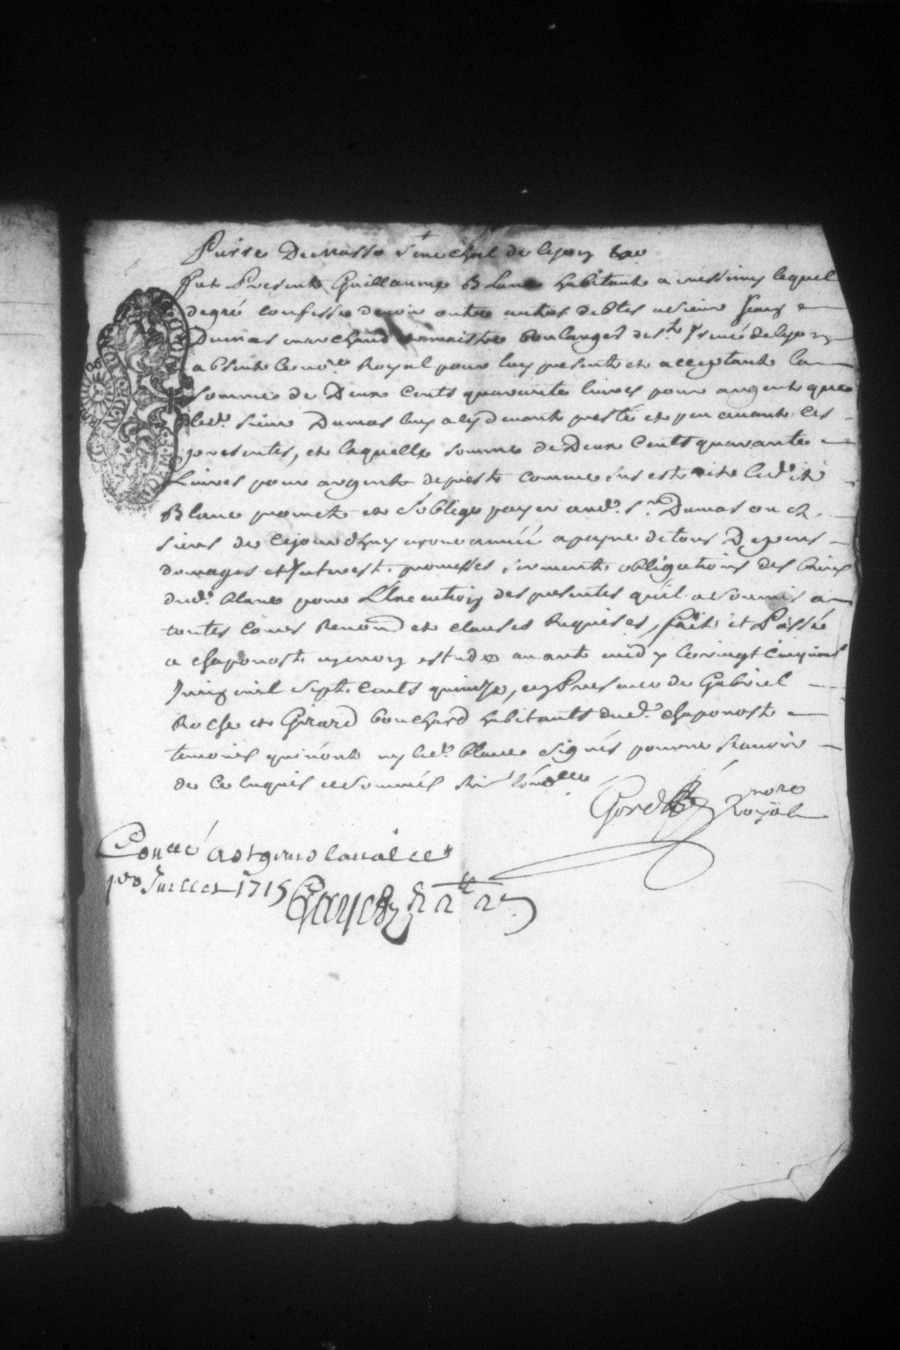 Pierre Dumasso senechal de Lyon &ca
fut Present Guillaume Blanc habitant a messimy lequel
de gré confesse devoir outre autres debtes a sieur Jean
Dumas marchand maistre boulanger de st Irenée de Lyon
absent le nore Royal pour luy present et acceptant la
somme de Deux Cents quarante livres pour argent que
led. sieur Dumas luy a cy devant presté et peu avant ces
presentes, et laquelle somme de Deux Cents quarante
Livres pour argent de prest comme sus est dit led. it
Blanc promet et s'oblige payer aud. sr. Dumas ou es
siens de cejourdhuy a une année a peyne de tous Depens
domages et Interest. promesses serment obligations des biens
dud. blanc pour L'Execution des presentes qu'il a soumis a
toutes Cours Renond et clauses Requises, fait et Passée
a chaponost en mon estude avant midy le vingt cinquieme
Juin mil sept cents quinze, en presence de Gabriel
Roche et Girard bouchard habitants dud. chaponost
temoins qui n'ont ny led. blanc signés pour ne scavoir
de ce enquis et sommés
nore
Royal
1er Juillet 1715